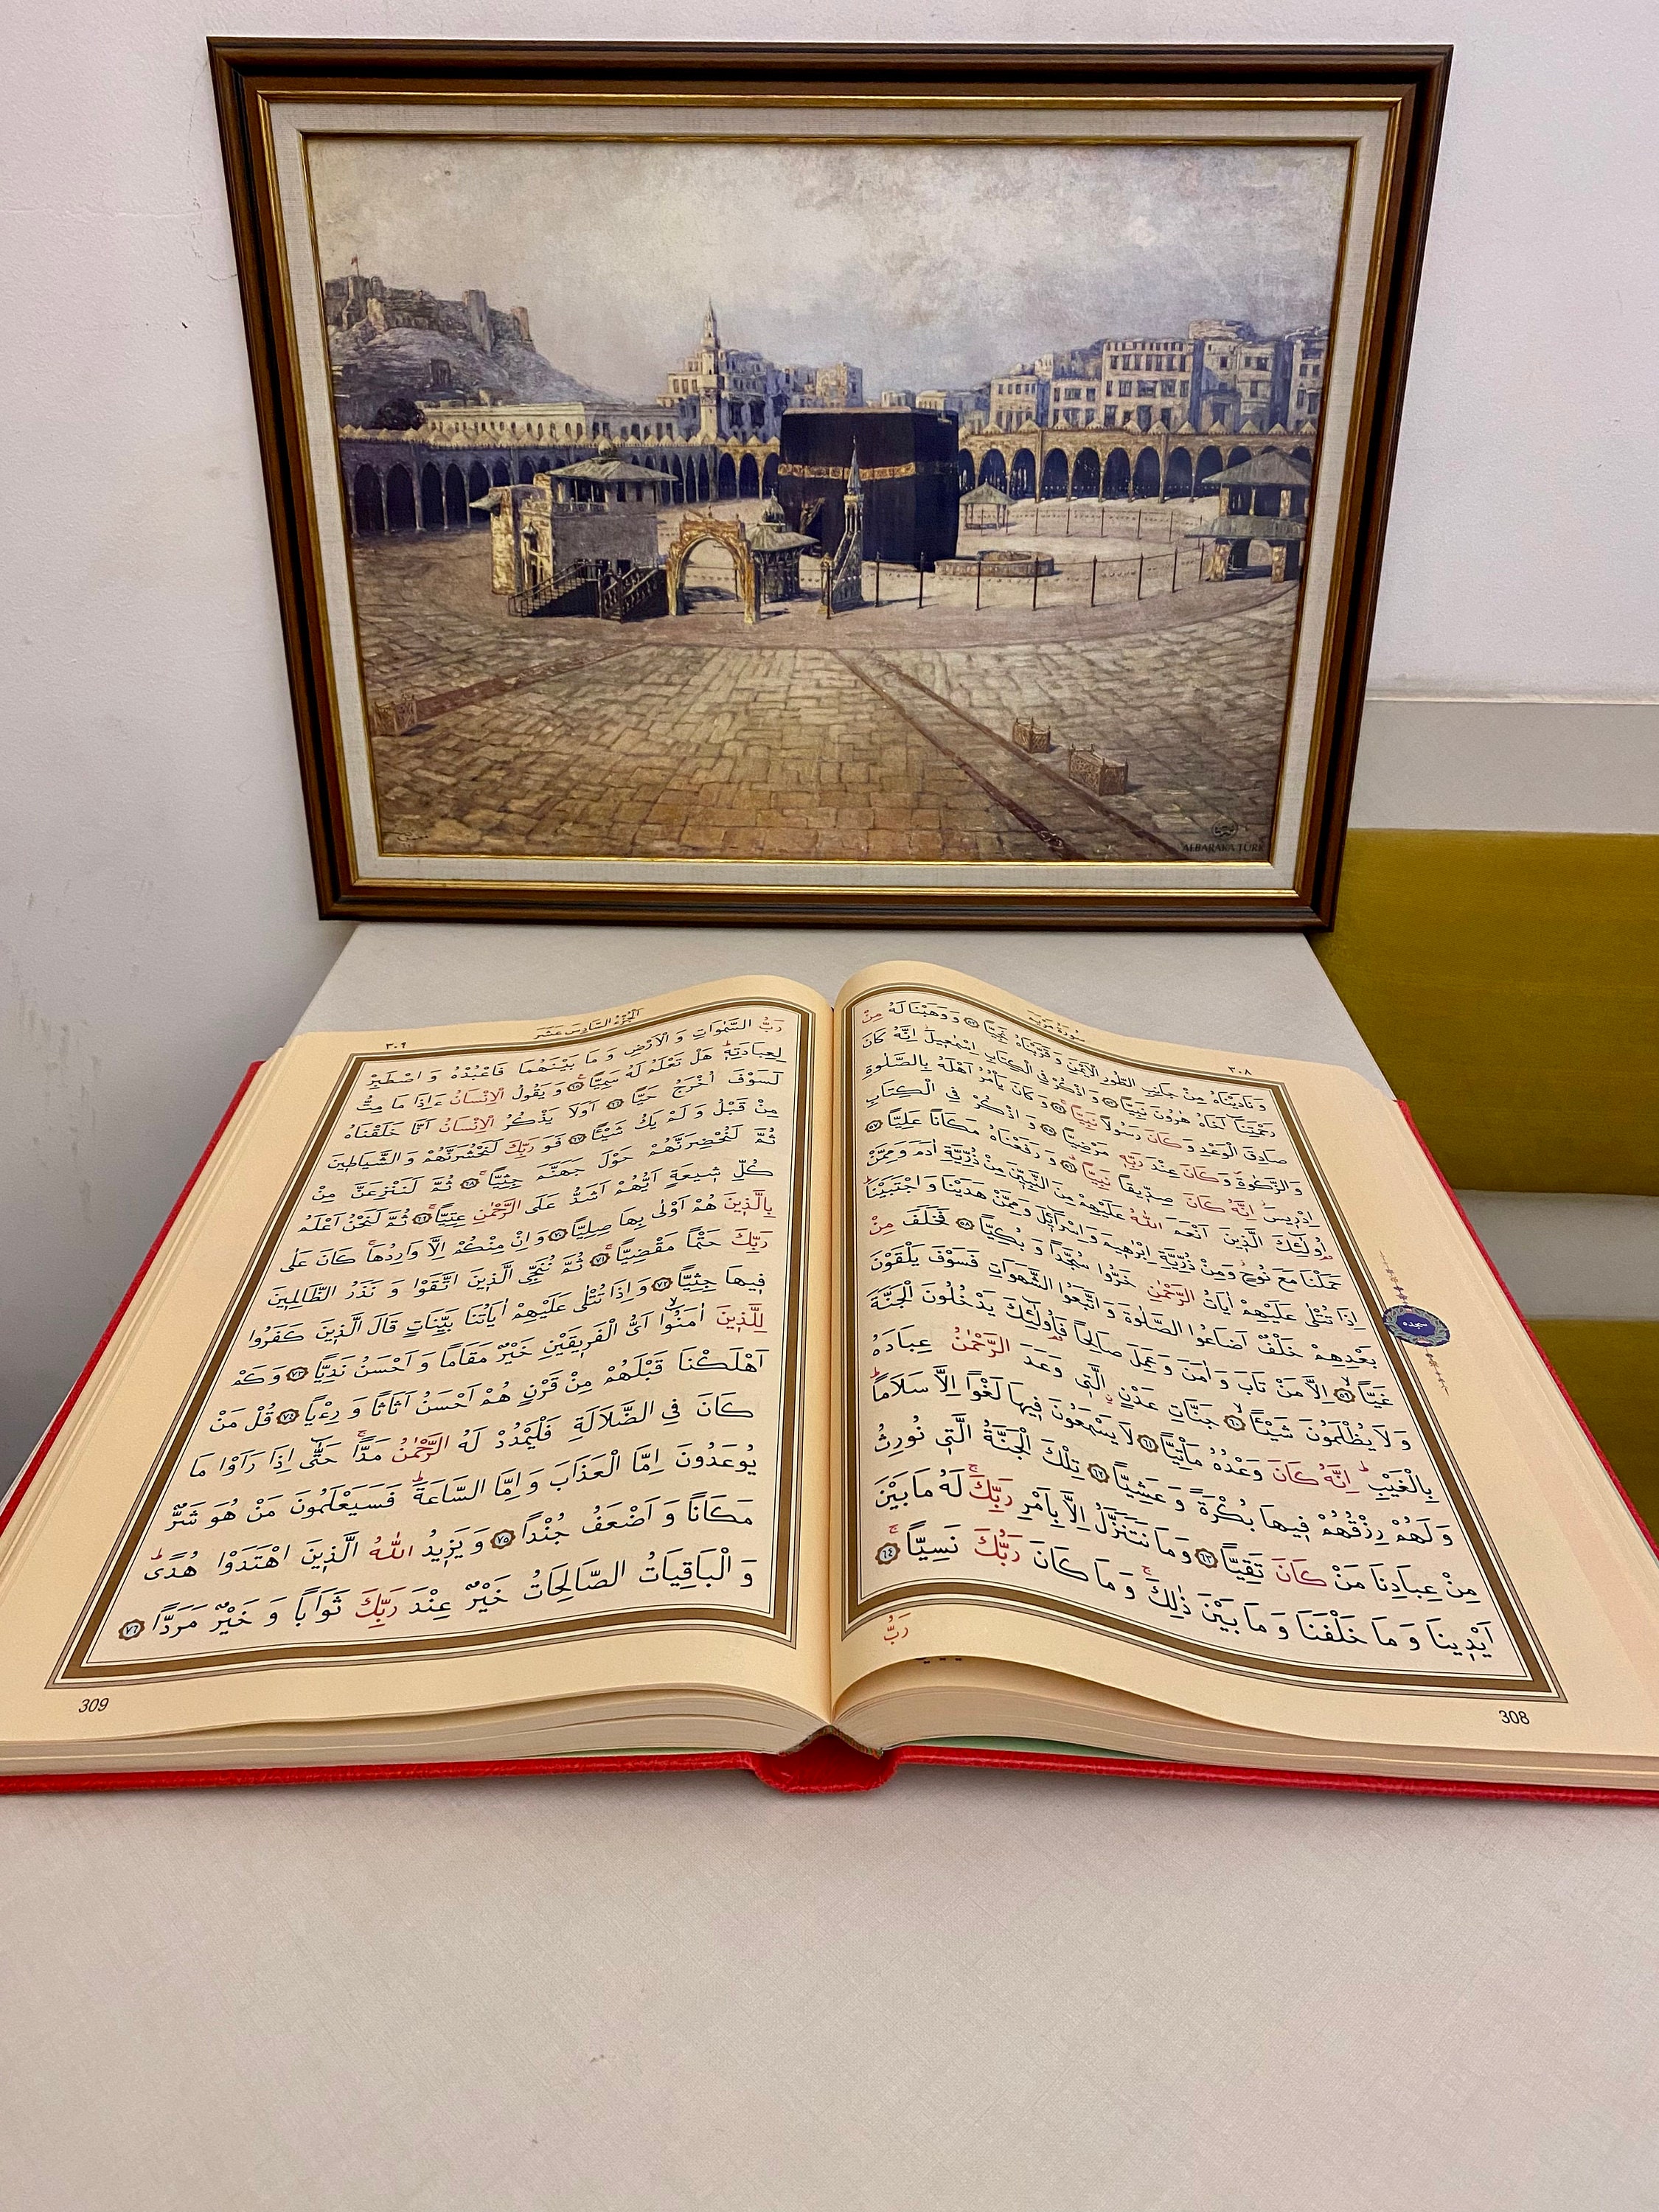 ALBARAKA TÜRK
سُورَةُ مَرْيَمَ
٣٠٨
وَنَادَيْنَاهُ مِنْ جَانِبِ الطُّورِ الْاَيْمَنِ وَقَرَّبْنَاهُ نَجِيًّا ﴿٥٢﴾ وَوَهَبْنَا لَهُ مِنْ
رَحْمَتِنَٓا اَخَاهُ هٰرُونَ نَبِيًّا ﴿٥٣﴾ وَاذْكُرْ فِي الْكِتَابِ اِسْمٰعِيلَۘ اِنَّهُ كَانَ
صَادِقَ الْوَعْدِ وَكَانَ رَسُولًا نَبِيًّاۚ ﴿٥٤﴾ وَكَانَ يَأْمُرُ اَهْلَهُ بِالصَّلٰوةِ
وَالزَّكٰوةِۖ وَكَانَ عِنْدَ رَبِّهِ مَرْضِيًّا ﴿٥٥﴾ وَاذْكُرْ فِي الْكِتَابِ
اِدْرِيسَۘ اِنَّهُ كَانَ صِدِّيقًا نَبِيًّاۗ ﴿٥٦﴾ وَرَفَعْنَاهُ مَكَانًا عَلِيًّا ﴿٥٧﴾
اُو۬لٰٓئِكَ الَّذِينَ اَنْعَمَ اللّٰهُ عَلَيْهِمْ مِنَ النَّبِيِّنَ مِنْ ذُرِّيَّةِ اٰدَمَ وَمِمَّنْ
حَمَلْنَا مَعَ نُوحٍۘ وَمِنْ ذُرِّيَّةِ اِبْرٰهِيمَ وَاِسْرَٓائِلَ وَمِمَّنْ هَدَيْنَا وَاجْتَبَيْنَاۜ
اِذَا تُتْلٰى عَلَيْهِمْ اٰيَاتُ الرَّحْمٰنِ خَرُّوا سُجَّدًا وَبُكِيًّا ﴿٥٨﴾ فَخَلَفَ مِنْ
بَعْدِهِمْ خَلْفٌ اَضَاعُوا الصَّلٰوةَ وَاتَّبَعُوا الشَّهَوَاتِ فَسَوْفَ يَلْقَوْنَ
غَيًّاۙ ﴿٥٩﴾ اِلَّا مَنْ تَابَ وَاٰمَنَ وَعَمِلَ صَالِحًا فَاُو۬لٰٓئِكَ يَدْخُلُونَ الْجَنَّةَ
وَلَا يُظْلَمُونَ شَيْـًٔاۙ ﴿٦٠﴾ جَنَّاتِ عَدْنٍۨ الَّتِي وَعَدَ الرَّحْمٰنُ عِبَادَهُ
بِالْغَيْبِۜ اِنَّهُ كَانَ وَعْدُهُ مَأْتِيًّا ﴿٦١﴾ لَا يَسْمَعُونَ فِيهَا لَغْوًا اِلَّا سَلَامًاۜ
وَلَهُمْ رِزْقُهُمْ فِيهَا بُكْرَةً وَعَشِيًّا ﴿٦٢﴾ تِلْكَ الْجَنَّةُ الَّتِي نُورِثُ
مِنْ عِبَادِنَا مَنْ كَانَ تَقِيًّا ﴿٦٣﴾ وَمَا نَتَنَزَّلُ اِلَّا بِاَمْرِ رَبِّكَۚ لَهُ مَا بَيْنَ
اَيْدِينَا وَمَا خَلْفَنَا وَمَا بَيْنَ ذٰلِكَۚ وَمَا كَانَ رَبُّكَ نَسِيًّاۚ ﴿٦٤﴾
رَبُّ
سجده
308
اَلْجُزْءُ السَّادِسَ عَشَرَ
٣٠٩
رَبُّ السَّمٰوَاتِ وَالْاَرْضِ وَمَا بَيْنَهُمَا فَاعْبُدْهُ وَاصْطَبِرْ
لِعِبَادَتِهِۜ هَلْ تَعْلَمُ لَهُ سَمِيًّا۟ ﴿٦٥﴾ وَيَقُولُ الْاِنْسَانُ ءَاِذَا مَا مِتُّ
لَسَوْفَ اُخْرَجُ حَيًّا ﴿٦٦﴾ اَوَلَا يَذْكُرُ الْاِنْسَانُ اَنَّا خَلَقْنَاهُ
مِنْ قَبْلُ وَلَمْ يَكُ شَيْـًٔا ﴿٦٧﴾ فَوَرَبِّكَ لَنَحْشُرَنَّهُمْ وَالشَّيَاطِينَ
ثُمَّ لَنُحْضِرَنَّهُمْ حَوْلَ جَهَنَّمَ جِثِيًّاۚ ﴿٦٨﴾ ثُمَّ لَنَنْزِعَنَّ مِنْ
كُلِّ شِيعَةٍ اَيُّهُمْ اَشَدُّ عَلَى الرَّحْمٰنِ عِتِيًّاۚ ﴿٦٩﴾ ثُمَّ لَنَحْنُ اَعْلَمُ
بِالَّذِينَ هُمْ اَوْلٰى بِهَا صِلِيًّا ﴿٧٠﴾ وَاِنْ مِنْكُمْ اِلَّا وَارِدُهَاۚ كَانَ عَلٰى
رَبِّكَ حَتْمًا مَقْضِيًّاۚ ﴿٧١﴾ ثُمَّ نُنَجِّي الَّذِينَ اتَّقَوْا وَنَذَرُ الظَّالِمِينَ
فِيهَا جِثِيًّا ﴿٧٢﴾ وَاِذَا تُتْلٰى عَلَيْهِمْ اٰيَاتُنَا بَيِّنَاتٍ قَالَ الَّذِينَ كَفَرُوا
لِلَّذِينَ اٰمَنُٓواۙ اَيُّ الْفَرِيقَيْنِ خَيْرٌ مَقَامًا وَاَحْسَنُ نَدِيًّا ﴿٧٣﴾ وَكَمْ
اَهْلَكْنَا قَبْلَهُمْ مِنْ قَرْنٍ هُمْ اَحْسَنُ اَثَاثًا وَرِءْيًا ﴿٧٤﴾ قُلْ مَنْ
كَانَ فِي الضَّلَالَةِ فَلْيَمْدُدْ لَهُ الرَّحْمٰنُ مَدًّاۚ حَتّٰٓى اِذَا رَاَوْا مَا
يُوعَدُونَ اِمَّا الْعَذَابَ وَاِمَّا السَّاعَةَۜ فَسَيَعْلَمُونَ مَنْ هُوَ شَرٌّ
مَكَانًا وَاَضْعَفُ جُنْدًا ﴿٧٥﴾ وَيَزِيدُ اللّٰهُ الَّذِينَ اهْتَدَوْا هُدًىۜ
وَالْبَاقِيَاتُ الصَّالِحَاتُ خَيْرٌ عِنْدَ رَبِّكَ ثَوَابًا وَخَيْرٌ مَرَدًّا ﴿٧٦﴾
309